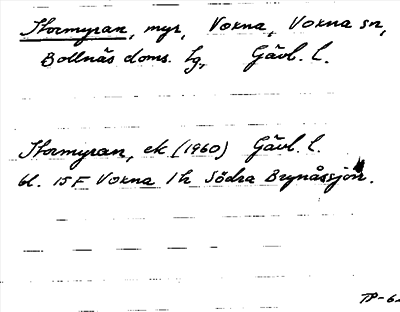 Stormyran, myr, Voxna, Voxna sn,
Bollnäs doms. lg, Gävl. l.
Stormyran, ek (1960) Gävl. l.
bl. 15F Voxna 1h Södra Brynåssjön.
TP-62